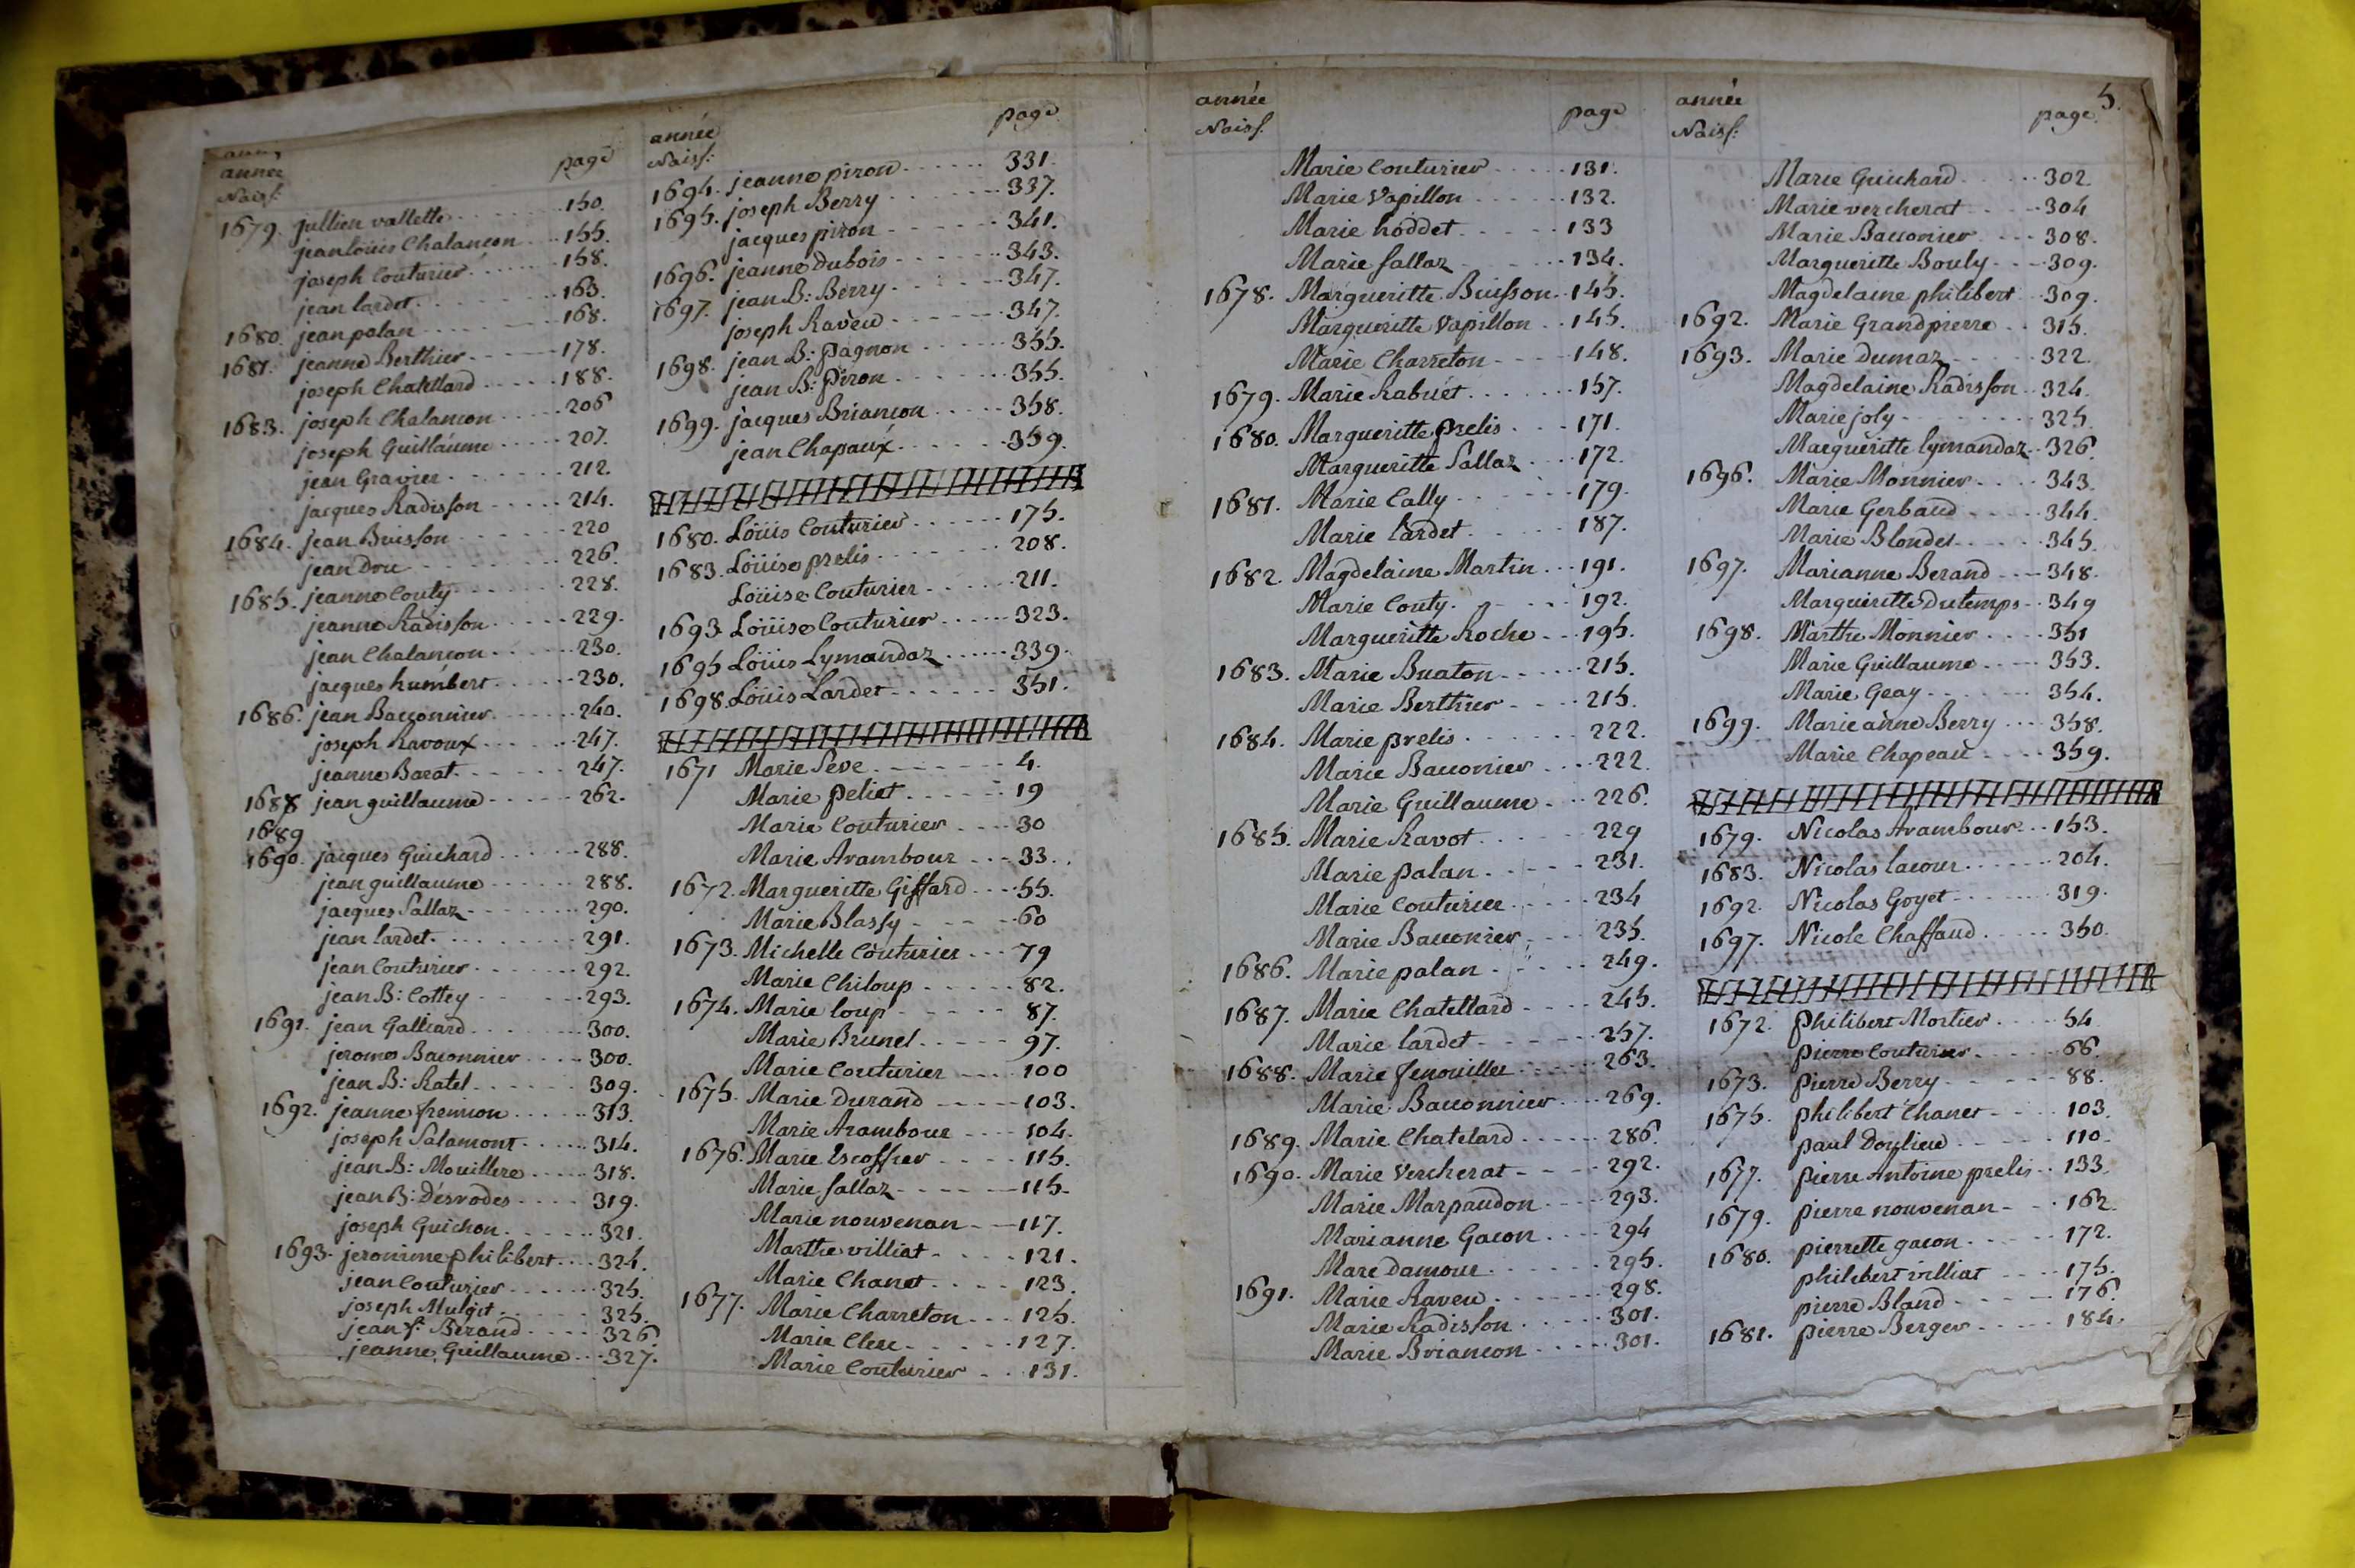 année
Naiss: page
1679. jullien vallette 150.
jean louis Chalancon 155.
joseph Couturier 158.
jean lardet 163.
1680. jean palan 168.
1681. jeanne Berthier 178.
joseph Chatellard 188.
1683. joseph Chalancon 206
joseph Guillaume 207.
jean Gravier 212.
jacques Radisson 214.
1684. jean Buisson 220
jean Dru 226.
1685. jeanne Couty 228.
jeanne Radisson 229.
jean Chalancon 230.
jacques humbert 230.
1686. jean Bacconnier 240.
joseph Ravoux 247.
jeanne Barat 247.
1688 jean guillaume 262.
1689
1690. jacques Guichard 288.
jean guillaume 288.
jacques Sallaz 290.
jean lardet 291.
jean Couturier 292.
jean B: Cottey 293.
1691. jean Galliard 300.
jerome Baconnier 300.
jean B: Ratel 309.
1692. jeanne fremion 313.
joseph Salamont 314.
jean B: Mouillere 318.
jean B: Desrodes 319.
joseph Guichon 321.
1693. jeronime philibert 324.
jean Couturier 325.
joseph Mulgit 325.
jean f: Berand 326
jeanne Guillaume 327.
année
Naiss: page
1694. jeanne piron 331.
1695. joseph Berry 337.
jacques piron 341.
1696. jeanne Dubois 343.
1697. jean B: Berry 347.
joseph Raveu 347.
1698. jean B: pagnon 355.
jean B: piron 355.
1699. jacques Briancon 358.
jean Chapaux 359.
1680. Louis Couturier 175.
1683. Louise prelis 208.
Louise Couturier 211.
1693 Louise Couturier 323.
1695 Louis Lymandaz 339.
1698. Louis Lardet 351.
1671 Marie Seve 4.
Marie peliet 19
Marie Couturier 30
Marie Arambour 33.
1672. Margueritte Giffard 55.
Marie Blassy 60
1673. Michelle Couturier 79
Marie Chiloup 82.
1674. Marie loup 87.
Marie Brunel 97.
Marie Couturier 100
1675. Marie Durand 103.
Marie Arambour 104.
1676. Marie Escoffier 115.
Marie sallaz 115.
Marie nouvenan 117.
Marthe villiat 121.
Marie Chanet 123.
1677. Marie Charreton 125.
Marie Clerc 127.
Marie Couturier 131.
année
Naiss: page
Marie Couturier 131.
Marie Vapillon 132.
Marie hoddet 133
Marie sallaz 134.
1678. Margueritte Buisson 145.
Margueritte Vapillon 145.
Marie Charreton 148.
1679. Marie Rabuet 157.
1680. Margueritte prelis 171.
Margueritte Sallaz 172.
1681. Marie Cally 179.
Marie lardet 187.
1682. Magdelaine Martin 191.
Marie Couty 192.
Margueritte Roche 195.
1683. Marie Buaton 215.
Marie Berthier 215.
1684. Marie prelis 222.
Marie Bacconier 222
Marie Guillaume 226.
1685. Marie Ravot 229
Marie palan 231.
Marie Couturier 234
Marie Bacconier 235.
1686. Marie palan 249.
1687. Marie Chatellard 245.
Marie lardet 257.
1688. Marie fenouillet 263.
Marie Bacconnier 269.
1689. Marie Chatelard 286.
1690. Marie Vercherat 292.
Marie Marpaudon 293.
Marianne Gacon 294
Mare Damour 295.
1691. Marie Raveu 298.
Marie Radisson 301.
Marie Briancon 301.
5.
année
Naiss: page
Marie Guichard 302
Marie vercherat 304
Marie Bacconier 308.
Margueritte Bouly 309.
Magdelaine philibert 309.
1692. Marie Grandpierre 315.
1693. Marie Dumaz 322.
Magdelaine Radisson 324.
Marie joly 325.
Margueritte lymandaz 326.
1696. Marie Monnier 343.
Marie Gerbaud 344.
Marie Blondel 345.
1697. Marianne Berand 348.
Margueritte Dutemps 349
1698. Marthe Monnier 351
Marie Guillaume 353.
Marie Geay 354.
1699. Marie anne Berry 358.
Marie Chapeau 359.
1679. Nicolas Arambour 153.
1683. Nicolas lacour 204.
1692. Nicolas Goyet 319.
1697. Nicole Chaffaud 350.
1672. philibert Mortier 54
pierre Couturier 66.
1673. pierre Berry 88.
1675. philibert Chanet 103
paul Doylieu 110
1677. pierre Antoine prelis 133
1679. pierre nouvenan 162.
1680. pierrette gacon 172.
philibert villiat 175.
pierre Bland 176.
1681. pierre Berger 184.